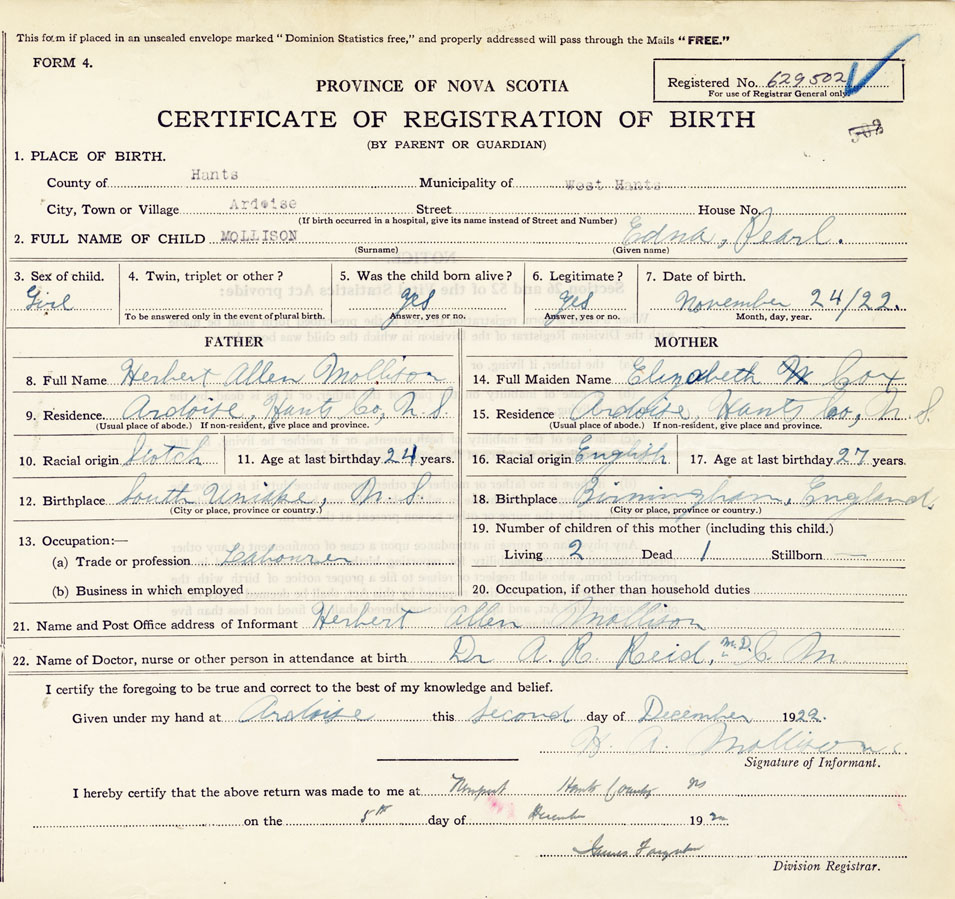 This form if placed in an unsealed envelope marked "Dominion Statistics free," and properly addressed will pass through the Mails "FREE."
FORM 4.
Registered No. 629502
For use of Registrar General only
PROVINCE OF NOVA SCOTIA
CERTIFICATE OF REGISTRATION OF BIRTH
502
(BY PARENT OR GUARDIAN)
1. PLACE OF BIRTH.
County of Hants Municipality of West Hants
City, Town or Village Ardoise Street House No.
(If birth occurred in a hospital, give its name instead of Street and Number)
2. FULL NAME OF CHILD MOLLISON Edna, Pearl.
(Surname) (Given name)
3. Sex of child. 4. Twin, triplet or other? 5. Was the child born alive? 6. Legitimate? 7. Date of birth.
Girl yes yes November 24/22.
To be answered only in the event of plural birth. Answer, yes or no. Answer, yes or no. Month, day, year.
FATHER MOTHER
8. Full Name Herbert Allen Mollison 14. Full Maiden Name Elizabeth Cox
9. Residence Ardoise, Hants Co, N.S. 15. Residence Ardoise, Hants Co, N.S.
(Usual place of abode.) If non-resident, give place and province. (Usual place of abode.) If non-resident, give place and province.
10. Racial origin Scotch 11. Age at last birthday 24 years. 16. Racial origin English 17. Age at last birthday 27 years.
12. Birthplace South Uniake, N.S. 18. Birthplace Birmingham, England.
(City or place, province or country.) (City or place, province or country.)
13. Occupation:— 19. Number of children of this mother (including this child.)
(a) Trade or profession Labourer Living 2 Dead 1 Stillborn —
(b) Business in which employed 20. Occupation, if other than household duties
21. Name and Post Office address of Informant Herbert Allen Mollison
22. Name of Doctor, nurse or other person in attendance at birth Dr A. R. Reid, M.D. C M.
I certify the foregoing to be true and correct to the best of my knowledge and belief.
Given under my hand at Ardoise this second day of December 1922.
H. A. Mollison
Signature of Informant.
I hereby certify that the above return was made to me at Newport Hants County NS
on the 5th day of December 1922
James
Division Registrar.